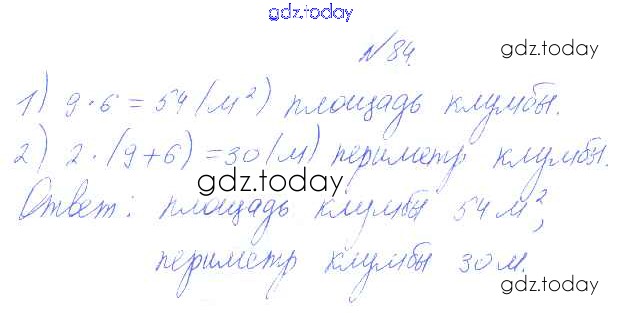 gdz.today
№84.
gdz.today
1) 9·6=54(м²) площадь клумбы.
2) 2·(9+6)=30(м) периметр клумбы.
gdz.today
Ответ: площадь клумбы 54 м²,
периметр клумбы 30 м.
gdz.today